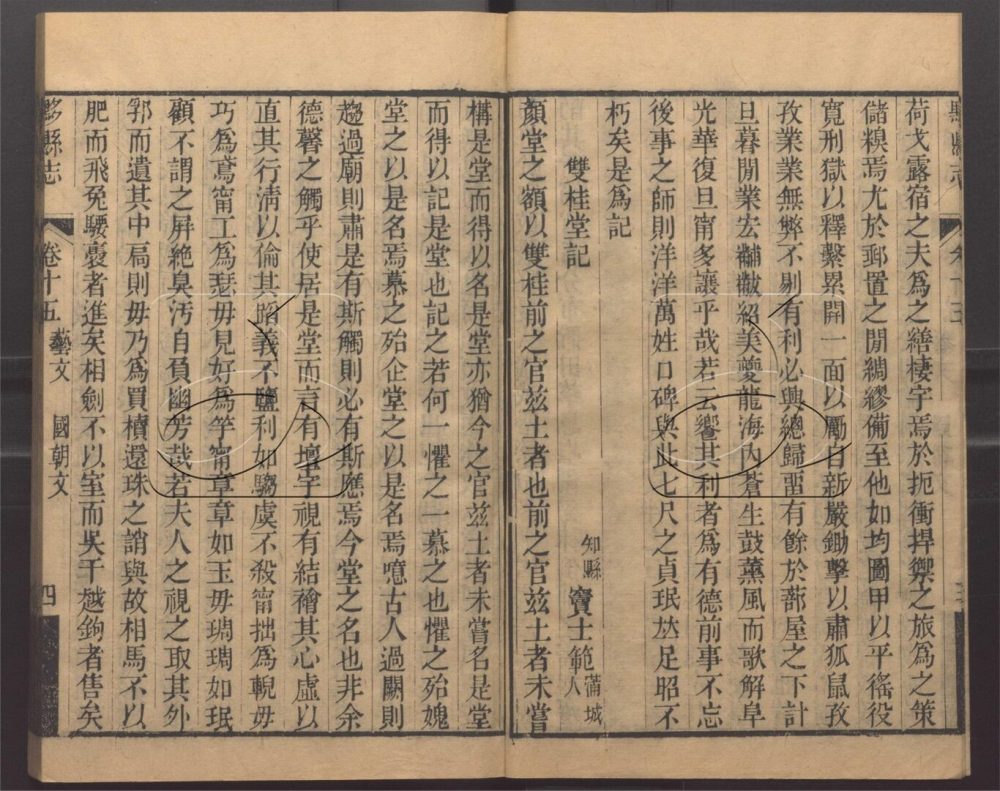 荷戈露宿之夫爲之繕棲宇焉於扼衝捍禦之旅爲之策
儲糗焉尤於郵置之閒綢繆備至他如均圖甲以平徭役
寬刑獄以釋繫累開一面以勵自新嚴鋤擊以肅狐鼠孜
孜業業無弊不剔有利必興總歸畱有餘於蔀屋之下計
旦暮閒業宏黼黻紹美夔龍海內蒼生鼓薰風而歌解阜
光華復旦甯多讓乎哉若云饗其利者爲有德前事不忘
後事之師則洋洋萬姓口碑與此七尺之貞珉竝足昭不
朽矣是爲記
雙桂堂記
知縣 竇士範 滿城人
顏堂之額以雙桂前之官兹土者也前之官兹土者未嘗
構是堂而得以名是堂亦猶今之官兹土者未嘗名是堂
而得以記是堂也記之若何一懼之一慕之也懼之殆媿
堂之以是名焉慕之殆企堂之以是名焉噫古人過闕則
趨過廟則肅是有斯觸則必有斯應焉今堂之名也非余
德馨之觸乎使居是堂而言有壇宇視有結襘其心虛以
直其行淸以倫其蹈義不鹽利如騶虞不殺甯拙爲輗毋
巧爲鳶甯工爲瑟毋見好爲竽甯章章如玉毋琱琱如珉
顧不謂之屏絶臭汚自負幽芳哉若夫人之視之取其外
郛而遺其中扃則毋乃爲買櫝還珠之誚與故相馬不以
肥而飛兔騕褭者進矣相劍不以室而吳干越鉤者售矣
黟縣志
卷十五 藝文 國朝文
四